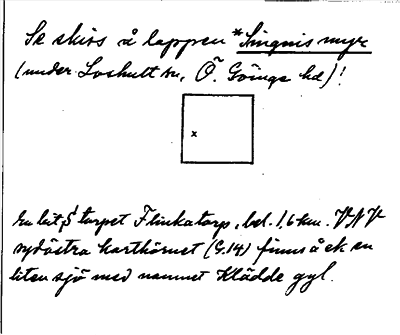 Se skiss å lappen *Singnis myr
(under Loshult sn, Ö. Göinge hd)!
x
en bit S torpet Flinkatorp, bel. 1,6 km. VNV
sydöstra karthörnet (G.14) finns å ek en
liten sjö med namnet Klädde gyl.